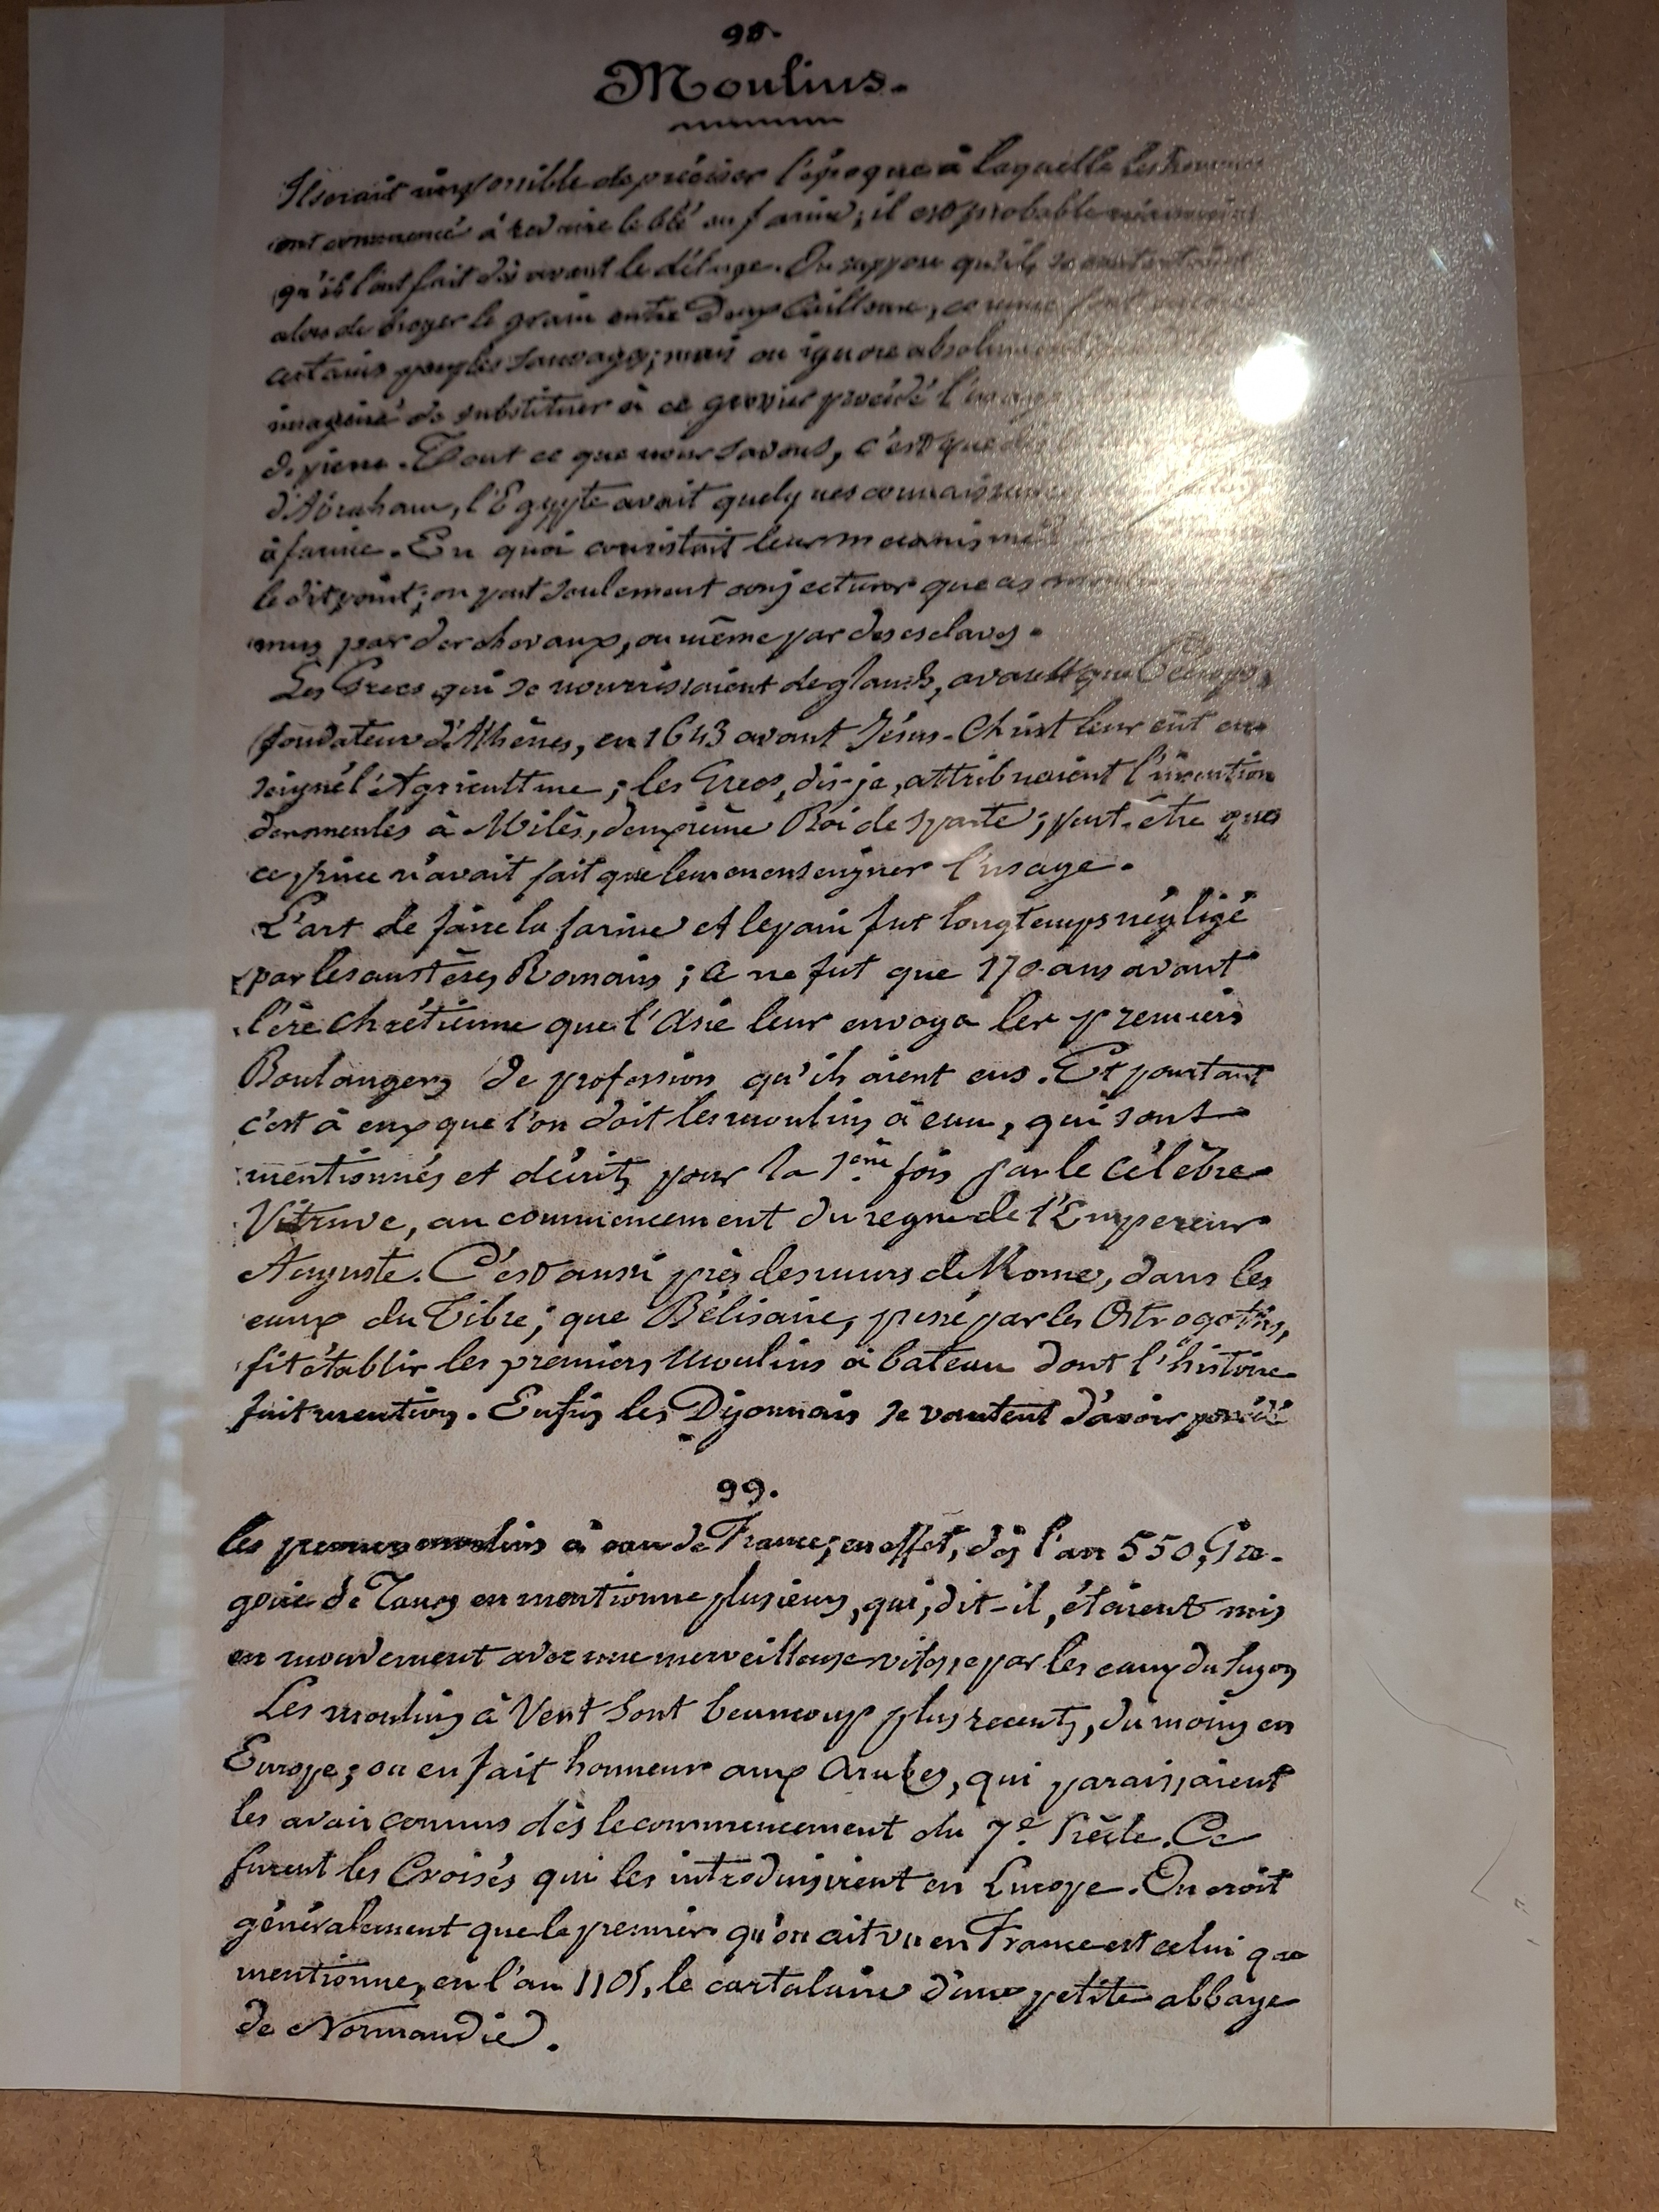 98.
Moulins.
Il serait impossible de préciser l'époque à laquelle les hommes
ont commencé à reduire le blé en farine; il est probable néanmoins
qu'ils l'ont fait dès avant le déluge. On suppose qu'ils se contentaient
alors de broyer le grain entre deux cailloux, comme font encore
certains peuples sauvages; mais on ignore absolument
imaginé de substituer à ce grossier procédé l'usage
de pierre. Tout ce que nous savons, c'est que dès
d'Abraham, l'Egypte avait quelques connaissances
à farine. En quoi consistait leur mécanisme
le dit point; on peut seulement conjecturer que ces moulins
mus par des chevaux, ou même par des esclaves.
Les Grecs qui se nourrissaient de glands, avant que Cécrops,
(fondateur d'Athènes, en 1643 avant Jésus-Christ leur eût en-
seigné l'Agriculture; les Grecs, dis-je, attribuaient l'invention
des meules à Milès, deuxième Roi de Sparte; peut-être que
ce prince n'avait fait que leur en enseigner l'usage.
L'art de faire la farine et le pain fut longtemps négligé
par les austères Romains; ce ne fut que 170 ans avant
l'ère chrétienne que l'Asie leur envoya les premiers
Boulangers de profession qu'ils aient eus. Et pourtant
c'est à eux que l'on doit les moulins à eau, qui sont
mentionnés et décrits pour la 1ère fois par le célèbre
Vitruve, au commencement du regne de l'Empereur
Auguste. C'est aussi près des murs de Rome, dans les
eaux du Tibre; que Bélisaire, pressé par les Ostrogoths,
fit établir les premiers Moulins à bateau dont l'histoire
fait mention. Enfin les Dijonnais se vantent d'avoir possédé
99.
les premiers moulins à eau de France; en effet, dès l'an 550, Gré-
goire de Tours en mentionne plusieurs, qui, dit-il, étaient mis
en mouvement avec une merveilleuse vitesse par les eaux du Suzon
Les moulins à Vent sont beaucoup plus recents, du moins en
Europe; on en fait honneur aux Arabes, qui paraissaient
les avoir connus dès le commencement du 7e Siècle. Ce
furent les Croisés qui les introduisirent en Europe. On croit
généralement que le premier qu'on ait vu en France est celui que
mentionne, en l'an 1105, le cartulaire d'une petite abbaye
de Normandie.